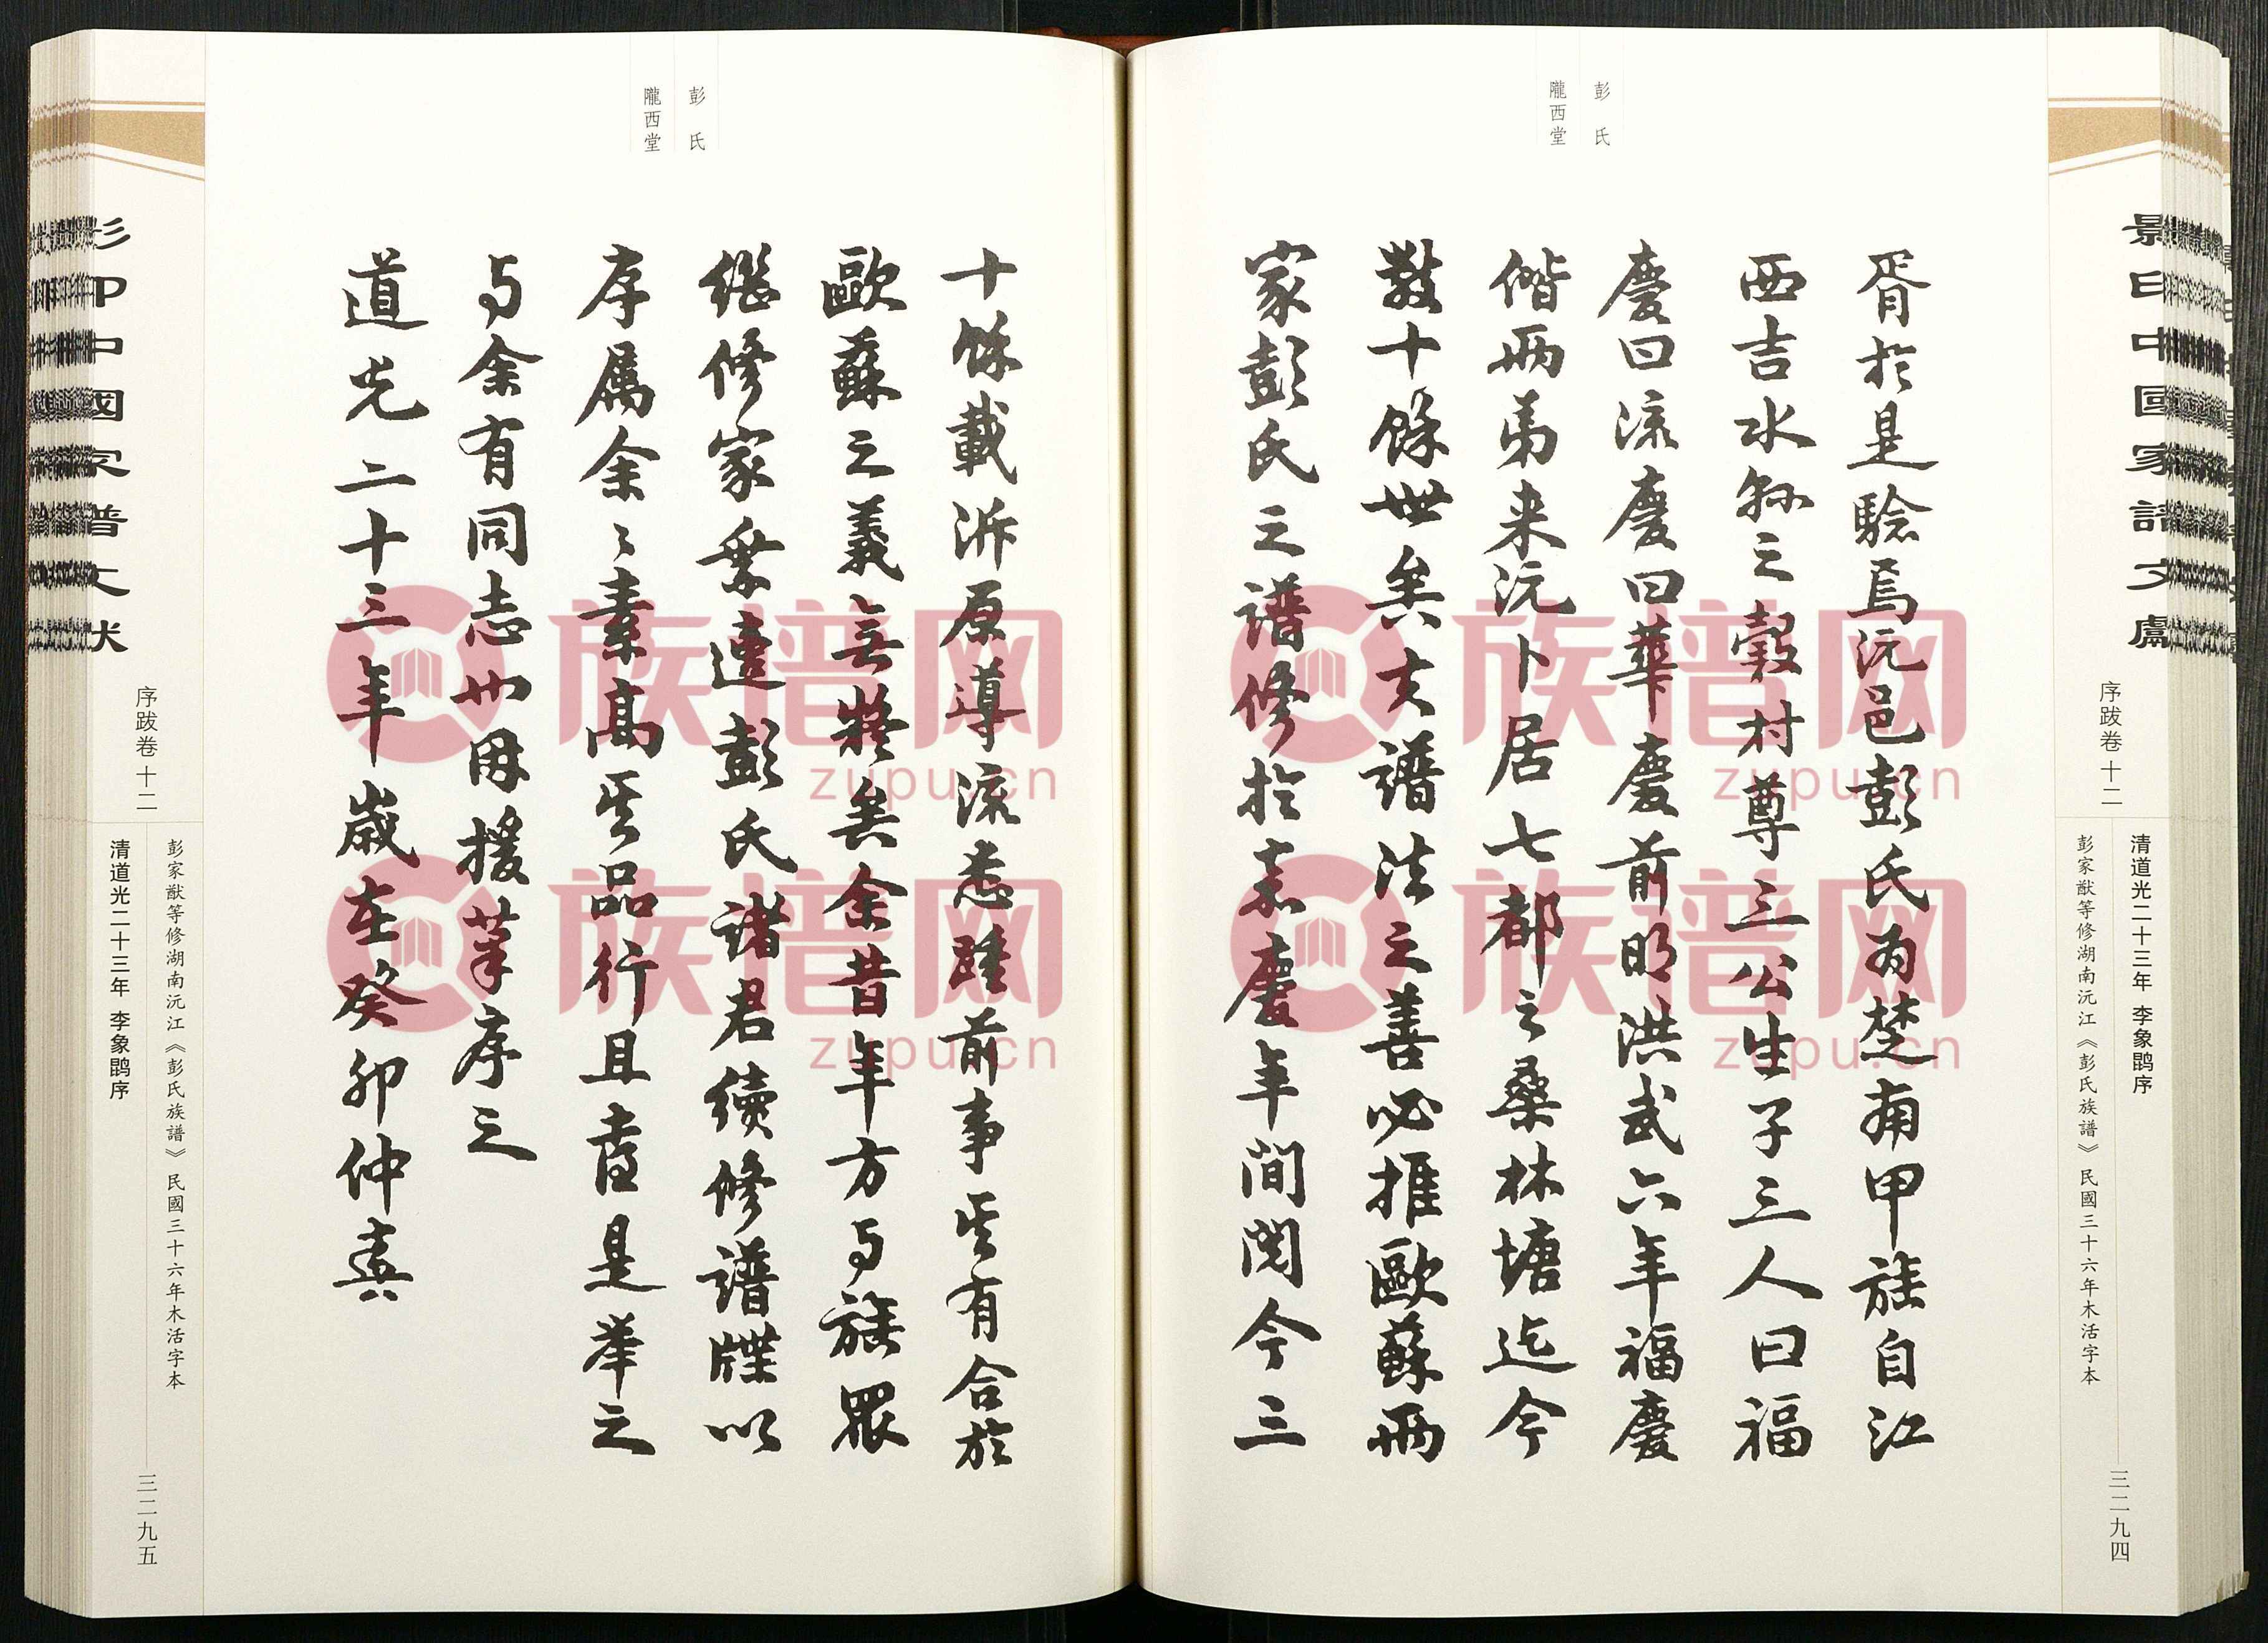 影印中國家譜文獻
序跋卷十二
清道光二十三年 李象鹍序
彭家猷等修湖南沅江《彭氏族譜》民國三十六年木活字本
三二九四
彭氏
隴西堂
胥於是驗焉沅邑彭氏為楚南甲族自江
西吉水分之穀村尊三公生子三人曰福
慶曰流慶曰華慶前明洪武六年福慶
偕兩弟来沅卜居七都之桑林塘迄今
数十餘世矣夫譜法之善必推歐蘇兩
家彭氏之譜修於嘉慶年間閱今三
彭氏
隴西堂
十餘載泝原導流悉踵前事实有合於
歐蘇之義無斁矣余昔年方与族眾
继修家乗適彭氏諸君續修譜牒以
序属余々素高其品行且喜是举之
与余有同志也因援筆序之
道光二十三年歲在癸卯仲嘉
序跋卷十二
彭家猷等修湖南沅江《彭氏族譜》民國三十六年木活字本
清道光二十三年 李象鹍序
三二九五
影印中國家譜文獻
族谱网
zupu.cn
族谱网
zupu.cn
族谱网
zupu.cn
族谱网
zupu.cn